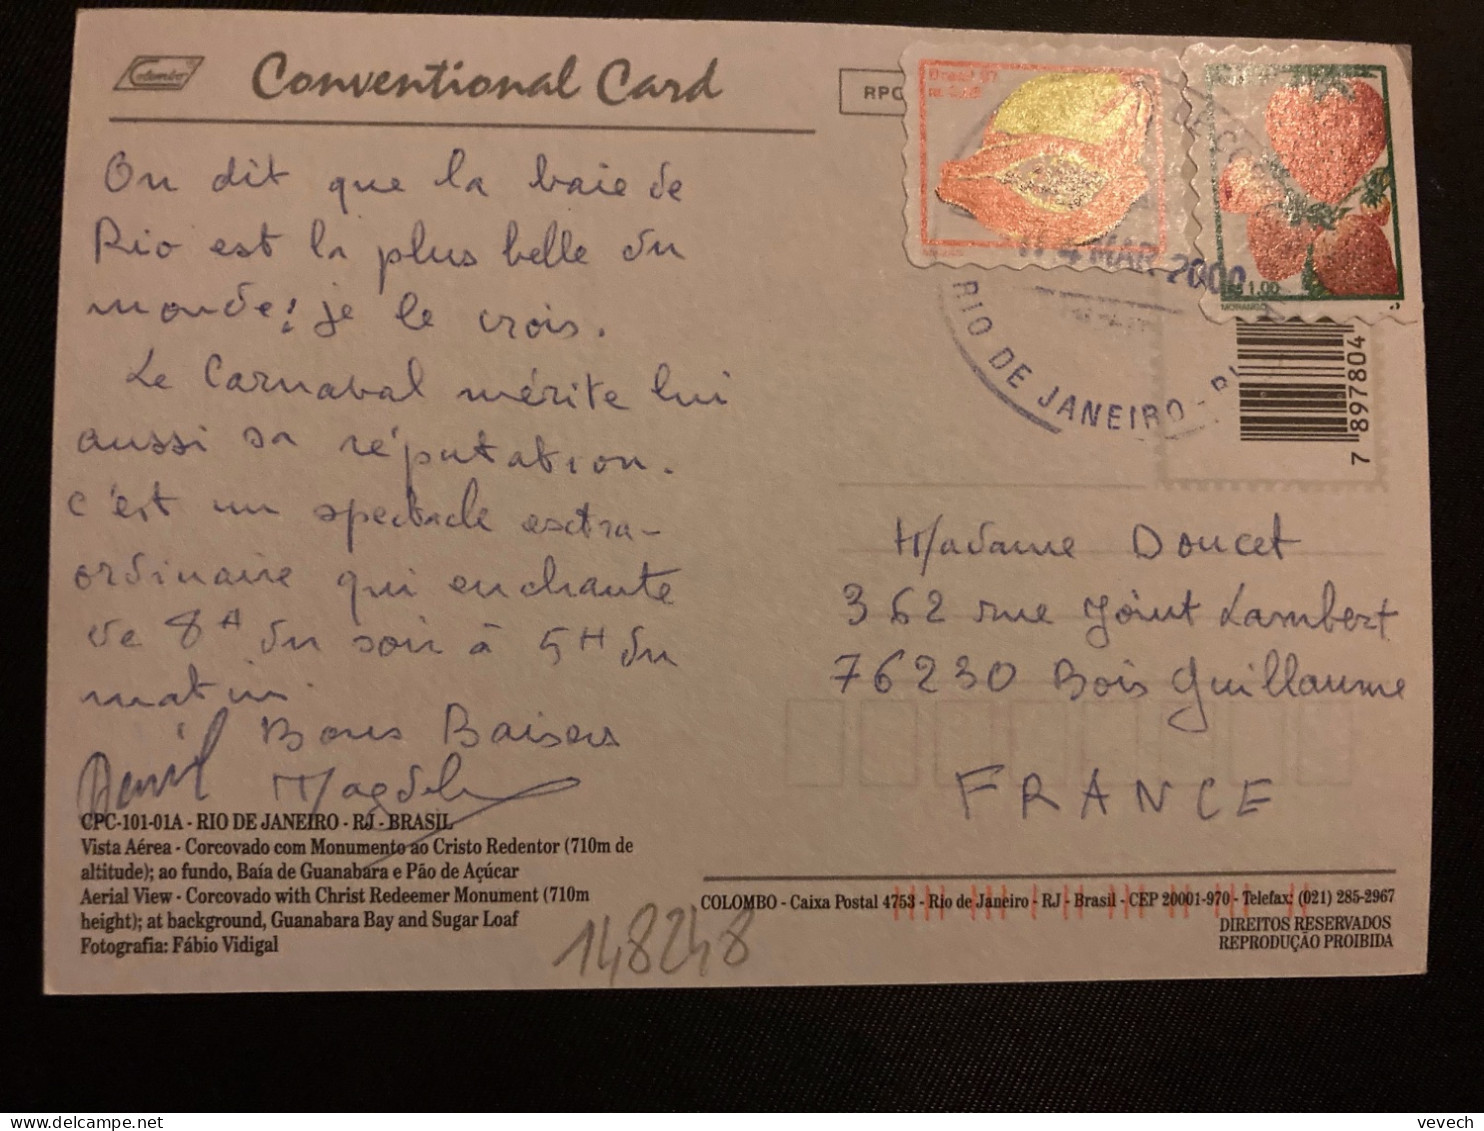 Colombo
Conventional Card
RPC
Brasil 97
DE CO
14 MAR 2000
RIO DE JANEIRO - RJ
1,00
MORANGO
7 897804
On dit que la baie de
Rio est la plus belle du
monde! je le crois.
Le Carnaval mérite lui
aussi sa réputation.
c'est un spectacle extra-
ordinaire qui enchante
de 8H du soir à 5H du
matin.
Bons Baisers
Magdel
Madame Doucet
362 rue Joint Lambert
76230 Bois Guillaume
FRANCE
CPC-101-01A - RIO DE JANEIRO - RJ - BRASIL
Vista Aérea - Corcovado com Monumento ao Cristo Redentor (710m de
altitude); ao fundo, Baía de Guanabara e Pão de Açúcar
Aerial View - Corcovado with Christ Redeemer Monument (710m
height); at background, Guanabara Bay and Sugar Loaf
Fotografia: Fábio Vidigal
148248
COLOMBO - Caixa Postal 4753 - Rio de Janeiro - RJ - Brasil - CEP 20001-970 - Telefax: (021) 285-2967
DIREITOS RESERVADOS
REPRODUÇÃO PROIBIDA
vevech